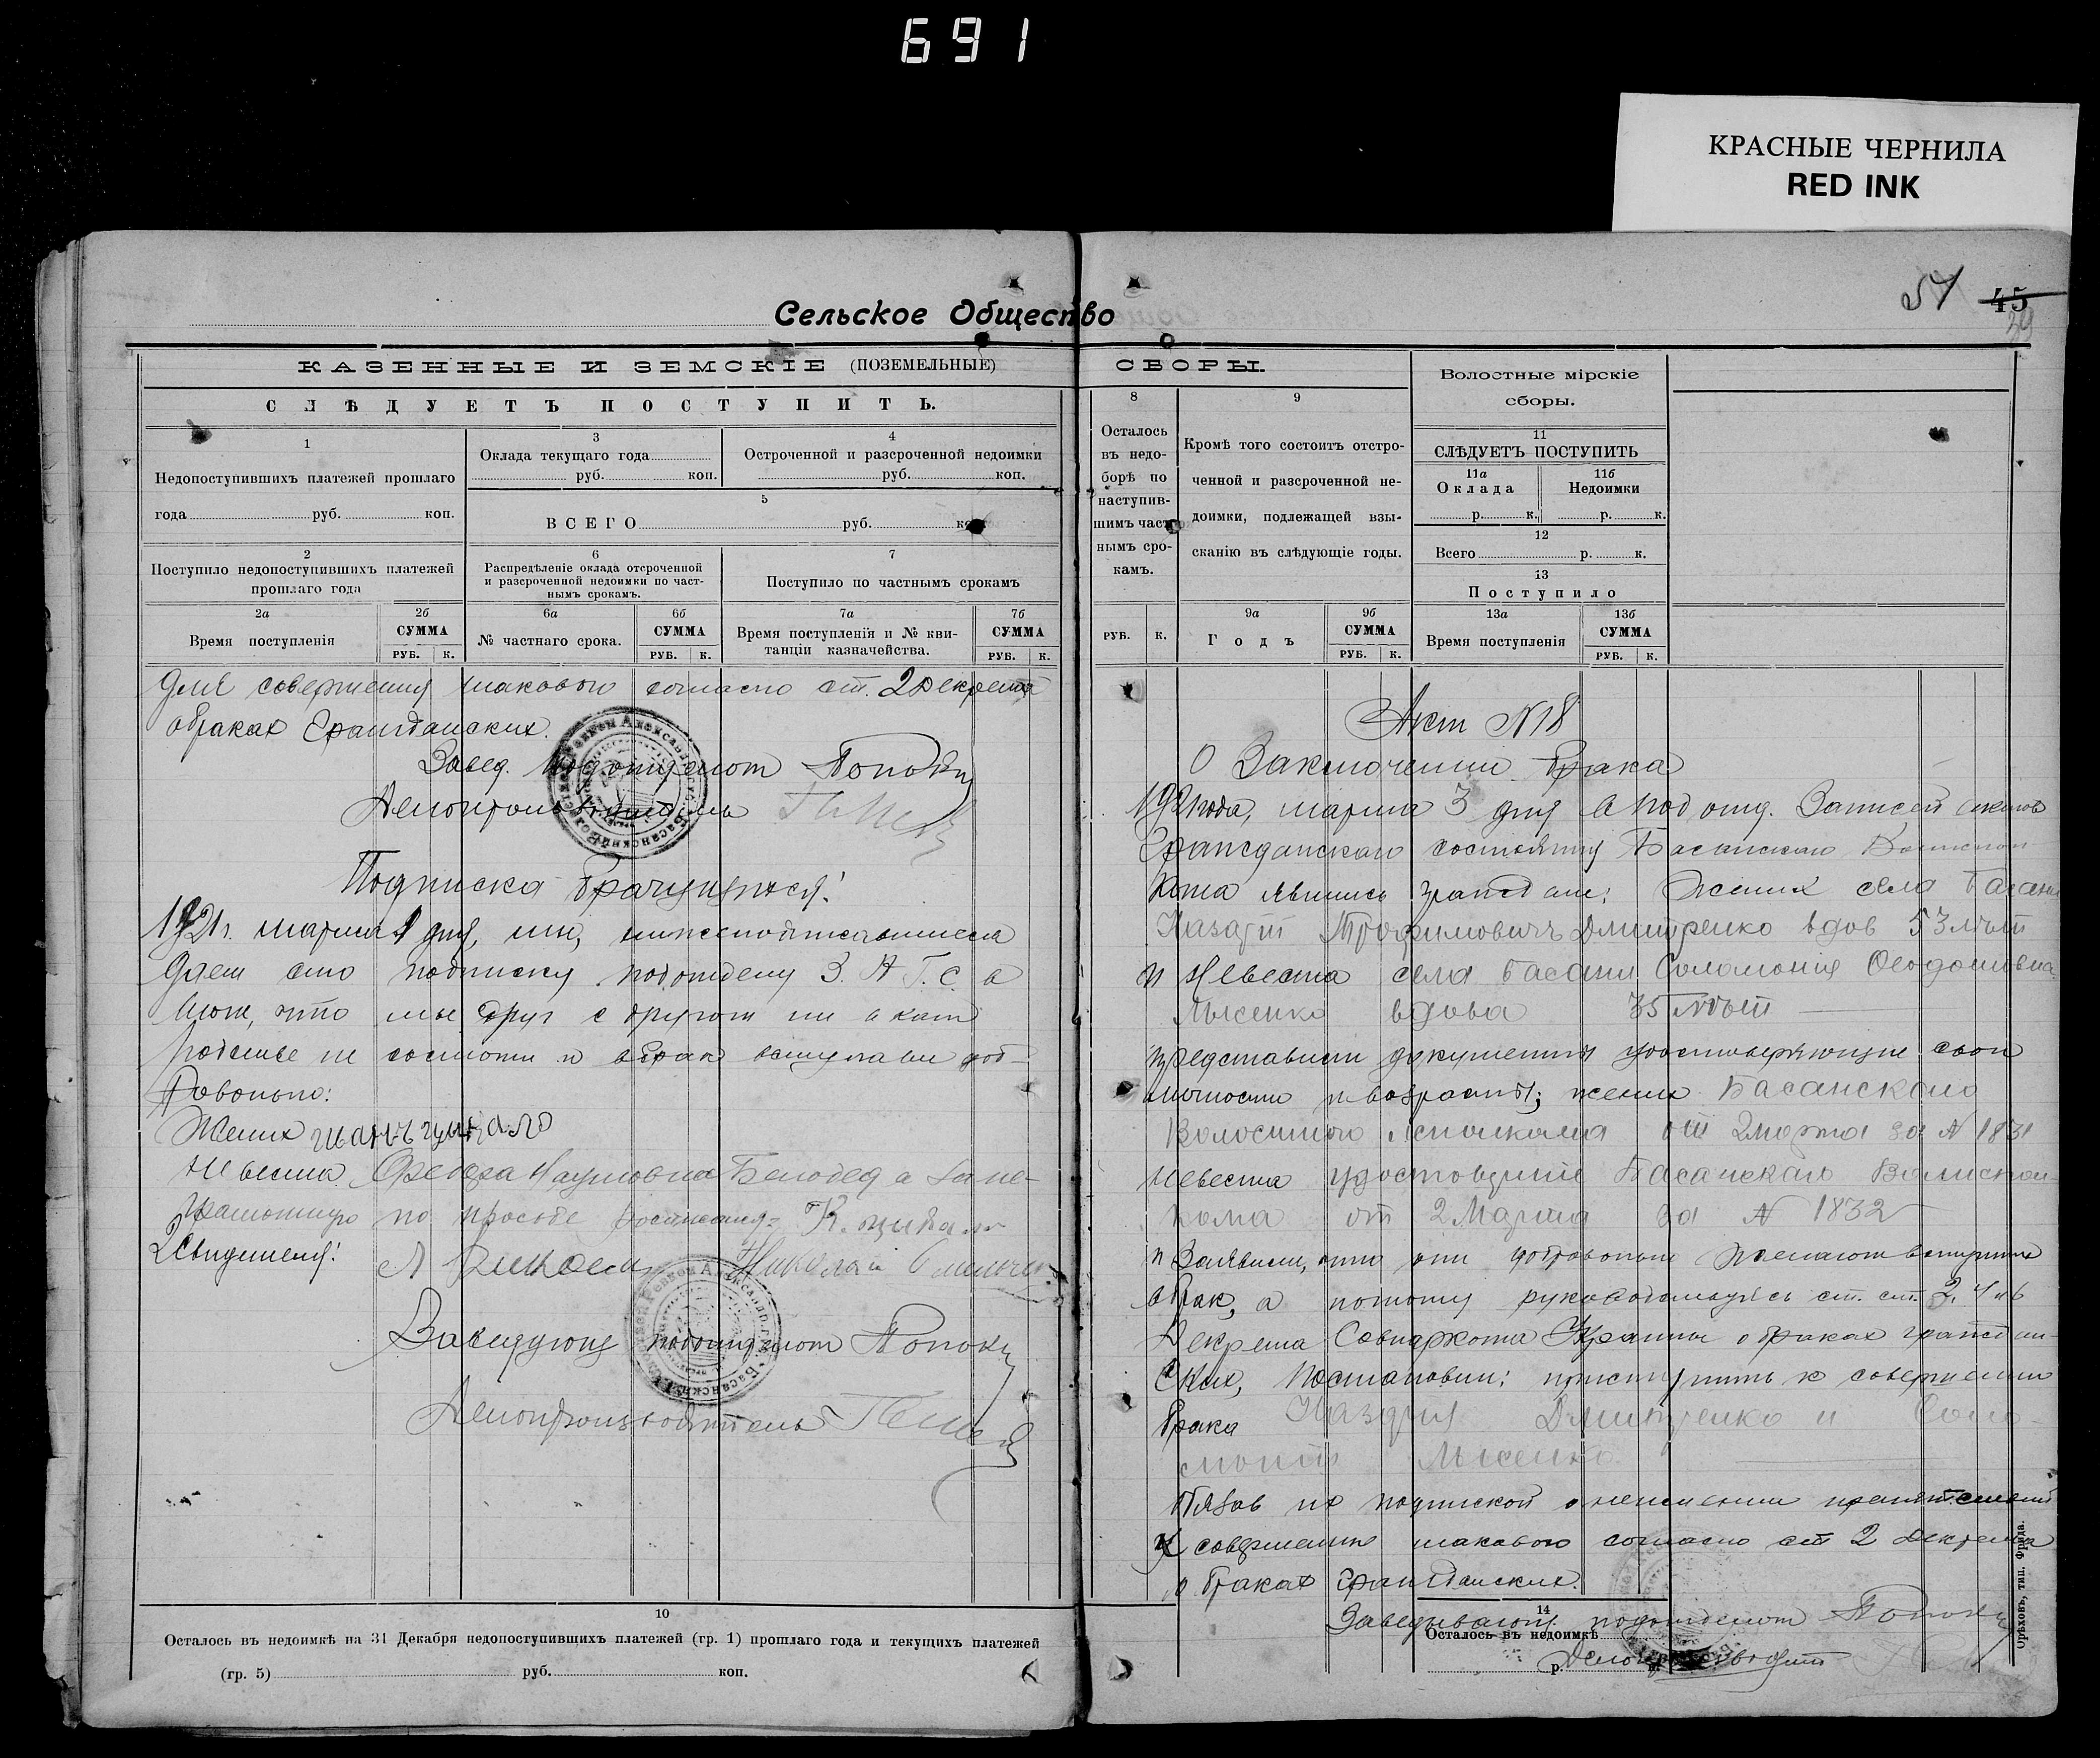 691
КРАСНЫЕ ЧЕРНИЛА
RED INK
Сельское Общество
КАЗЕННЫЕ И ЗЕМСКІЕ (ПОЗЕМЕЛЬНЫЕ)
СЛѢДУЕТЪ ПОСТУПИТЬ.
1
Недопоступившихъ платежей прошлаго
года руб. коп.
3
Оклада текущаго года
руб. коп.
4
Отстроченной и разсроченной недоимки
руб. коп.
5
ВСЕГО руб.
2
Поступило недопоступившихъ платежей
прошлаго года
6
Распредѣленіе оклада отсроченной
и разсроченной недоимки по част-
нымъ срокамъ.
7
Поступило по частнымъ срокамъ
2а
Время поступленія
2б
СУММА
РУБ. К.
6а
№ частнаго срока.
6б
СУММА
РУБ. К.
7а
Время поступленія и № кви-
танціи казначейства.
7б
СУММА
РУБ. К.
для совершения такового согласно ст. 2 Декрета
о браках Гражданских.
Завед. Подотделом
Делопроизводитель
Подписка брачущихся:
1921 г. марта дня, мы, нижеподписавшиеся
даем сию подписку подотделу З. А. Г. С. в
том, что мы друг с другом ни в каком
родстве не состоим и в брак вступаем доб-
ровольно:
Жених
Невеста Наумовна Белобед а за не-
грамотную по просьбе
2 Свидетеля: Николай
Заведующ подотделом
Делопроизводитель
10
Осталось въ недоимкѣ на 31 Декабря недопоступившихъ платежей (гр. 1) прошлаго года и текущихъ платежей
(гр. 5) руб. коп.
45
СБОРЫ.
8
Осталось
въ недо-
борѣ по
наступив-
шимъ част
нымъ сро-
камъ.
РУБ. К.
9
Кромѣ того состоитъ отстро-
ченной и разсроченной не-
доимки, подлежащей взы-
сканію въ слѣдующіе годы.
9а
Годъ
9б
СУММА
РУБ. К.
Волостные мірскіе
сборы.
11
СЛѢДУЕТЪ ПОСТУПИТЬ
11а
Оклада
р. к.
11б
Недоимки
р. к.
12
Всего р. к.
13
Поступило
13а
Время поступленія
13б
СУММА
РУБ. К.
Акт N 18
О Заключении брака
1921 года, марта 3 дня в Подотд. Записей актов
Гражданского состояния Басанского
кома явились граждане: Жених села Басани
Назарий Трофимович Дмитренко вдов 53 лет
и Невеста села Басани Соломония Феодосиевна
Лысенко вдова 35 лет
представили документы удостоверяющие свои
личности и возраст; жених Басанского
Волостного Исполкома от 2 марта за N 1831
невеста Басанского
кома от 2 Марта за N 1832
и Заявили, что они добровольно желают вступить
в брак, а потому руководствуясь ст. ст. 2, 4 и 6
Декрета Совнаркома Украины о браках граждан-
ских, Постановил: приступить к совершению
брака Назария Дмитренко и Соло-
монии Лысенко
обязав их подпиской о неимении препятствий
к совершению такового согласно ст 2 Декрета
о браках Гражданских.
Заведывающ подотделом
Делопроизводит
14
Осталось въ недоимкѣ
р.
Орѣховъ, тип. Фрида.